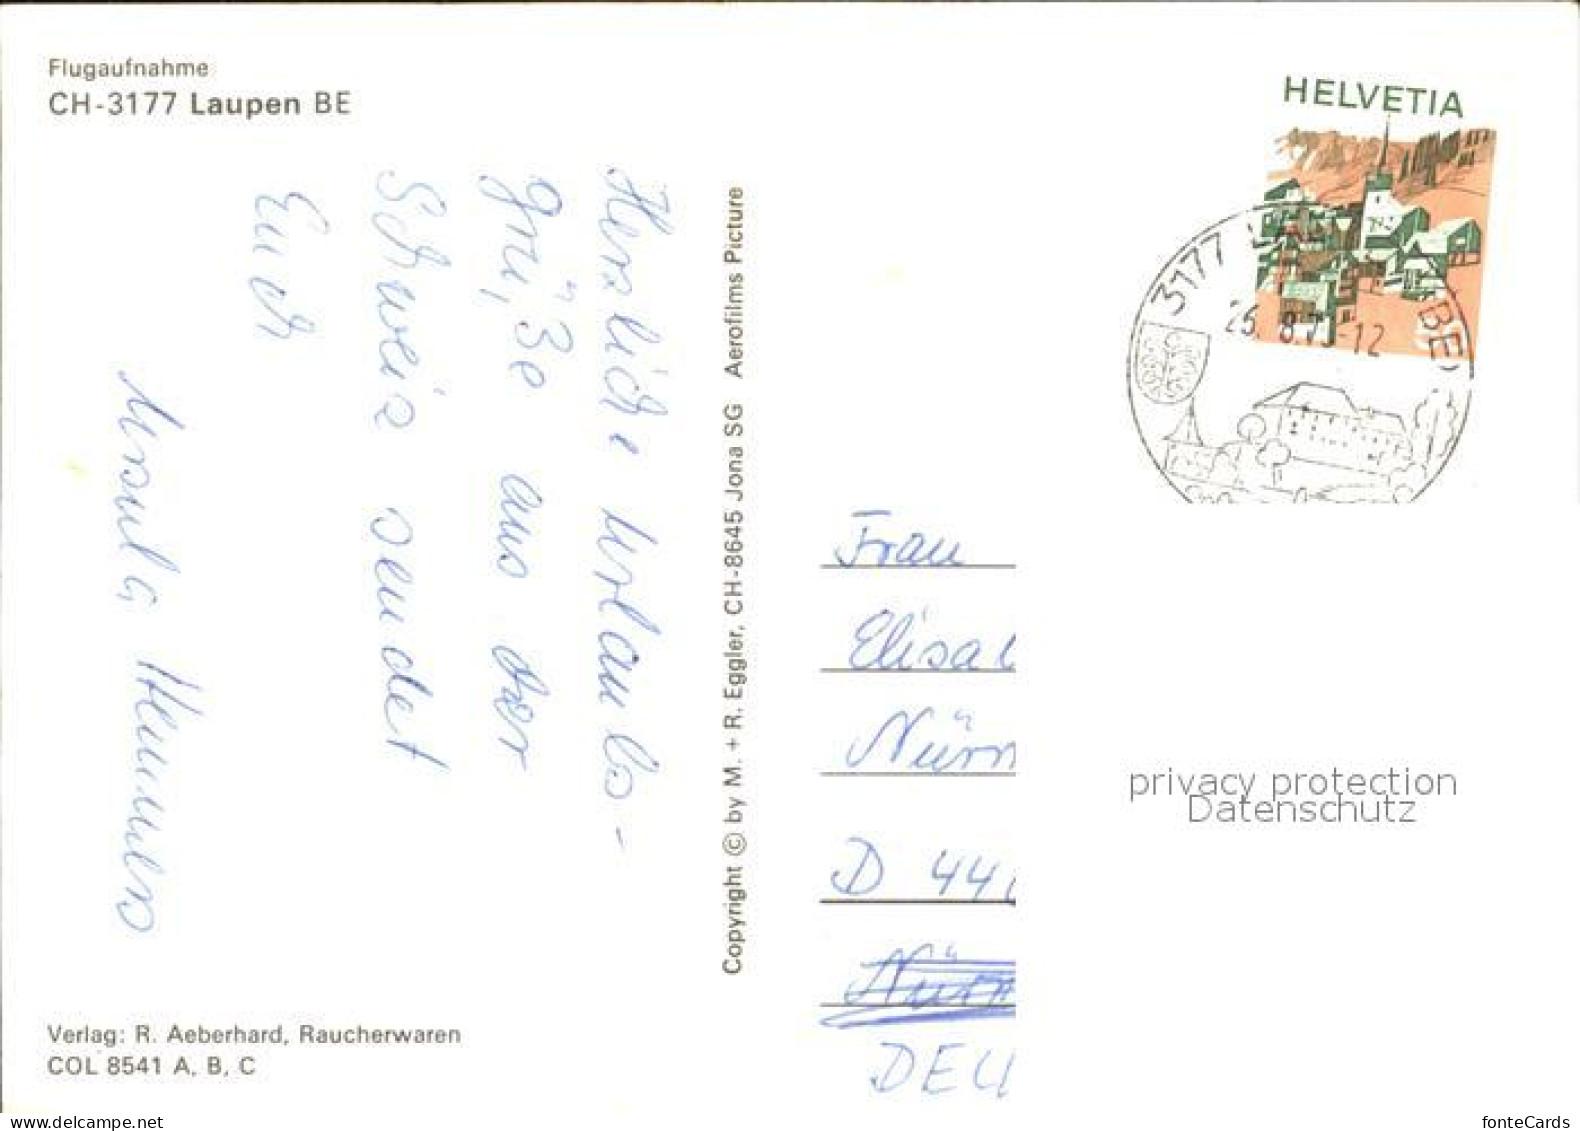 Flugaufnahme
CH-3177 Laupen BE
Herzliche Urlaubs-
grüße aus der
Schweiz sendet
Euch
Ursula
Copyright © by M. + R. Eggler, CH-8645 Jona SG Aerofilms Picture
Verlag: R. Aeberhard, Raucherwaren
COL 8541 A, B, C
HELVETIA
3177 BE)
25. 8.7 -12
Frau
Elisa
Nürn
D 44
Nürn
DEU
privacy protection
Datenschutz
www.delcampe.net
fonteCards